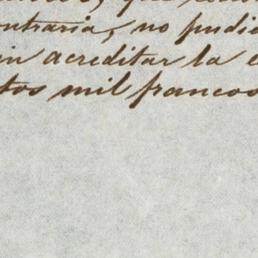 ontraria, no pudie
in acreditar la e
tos mil francos